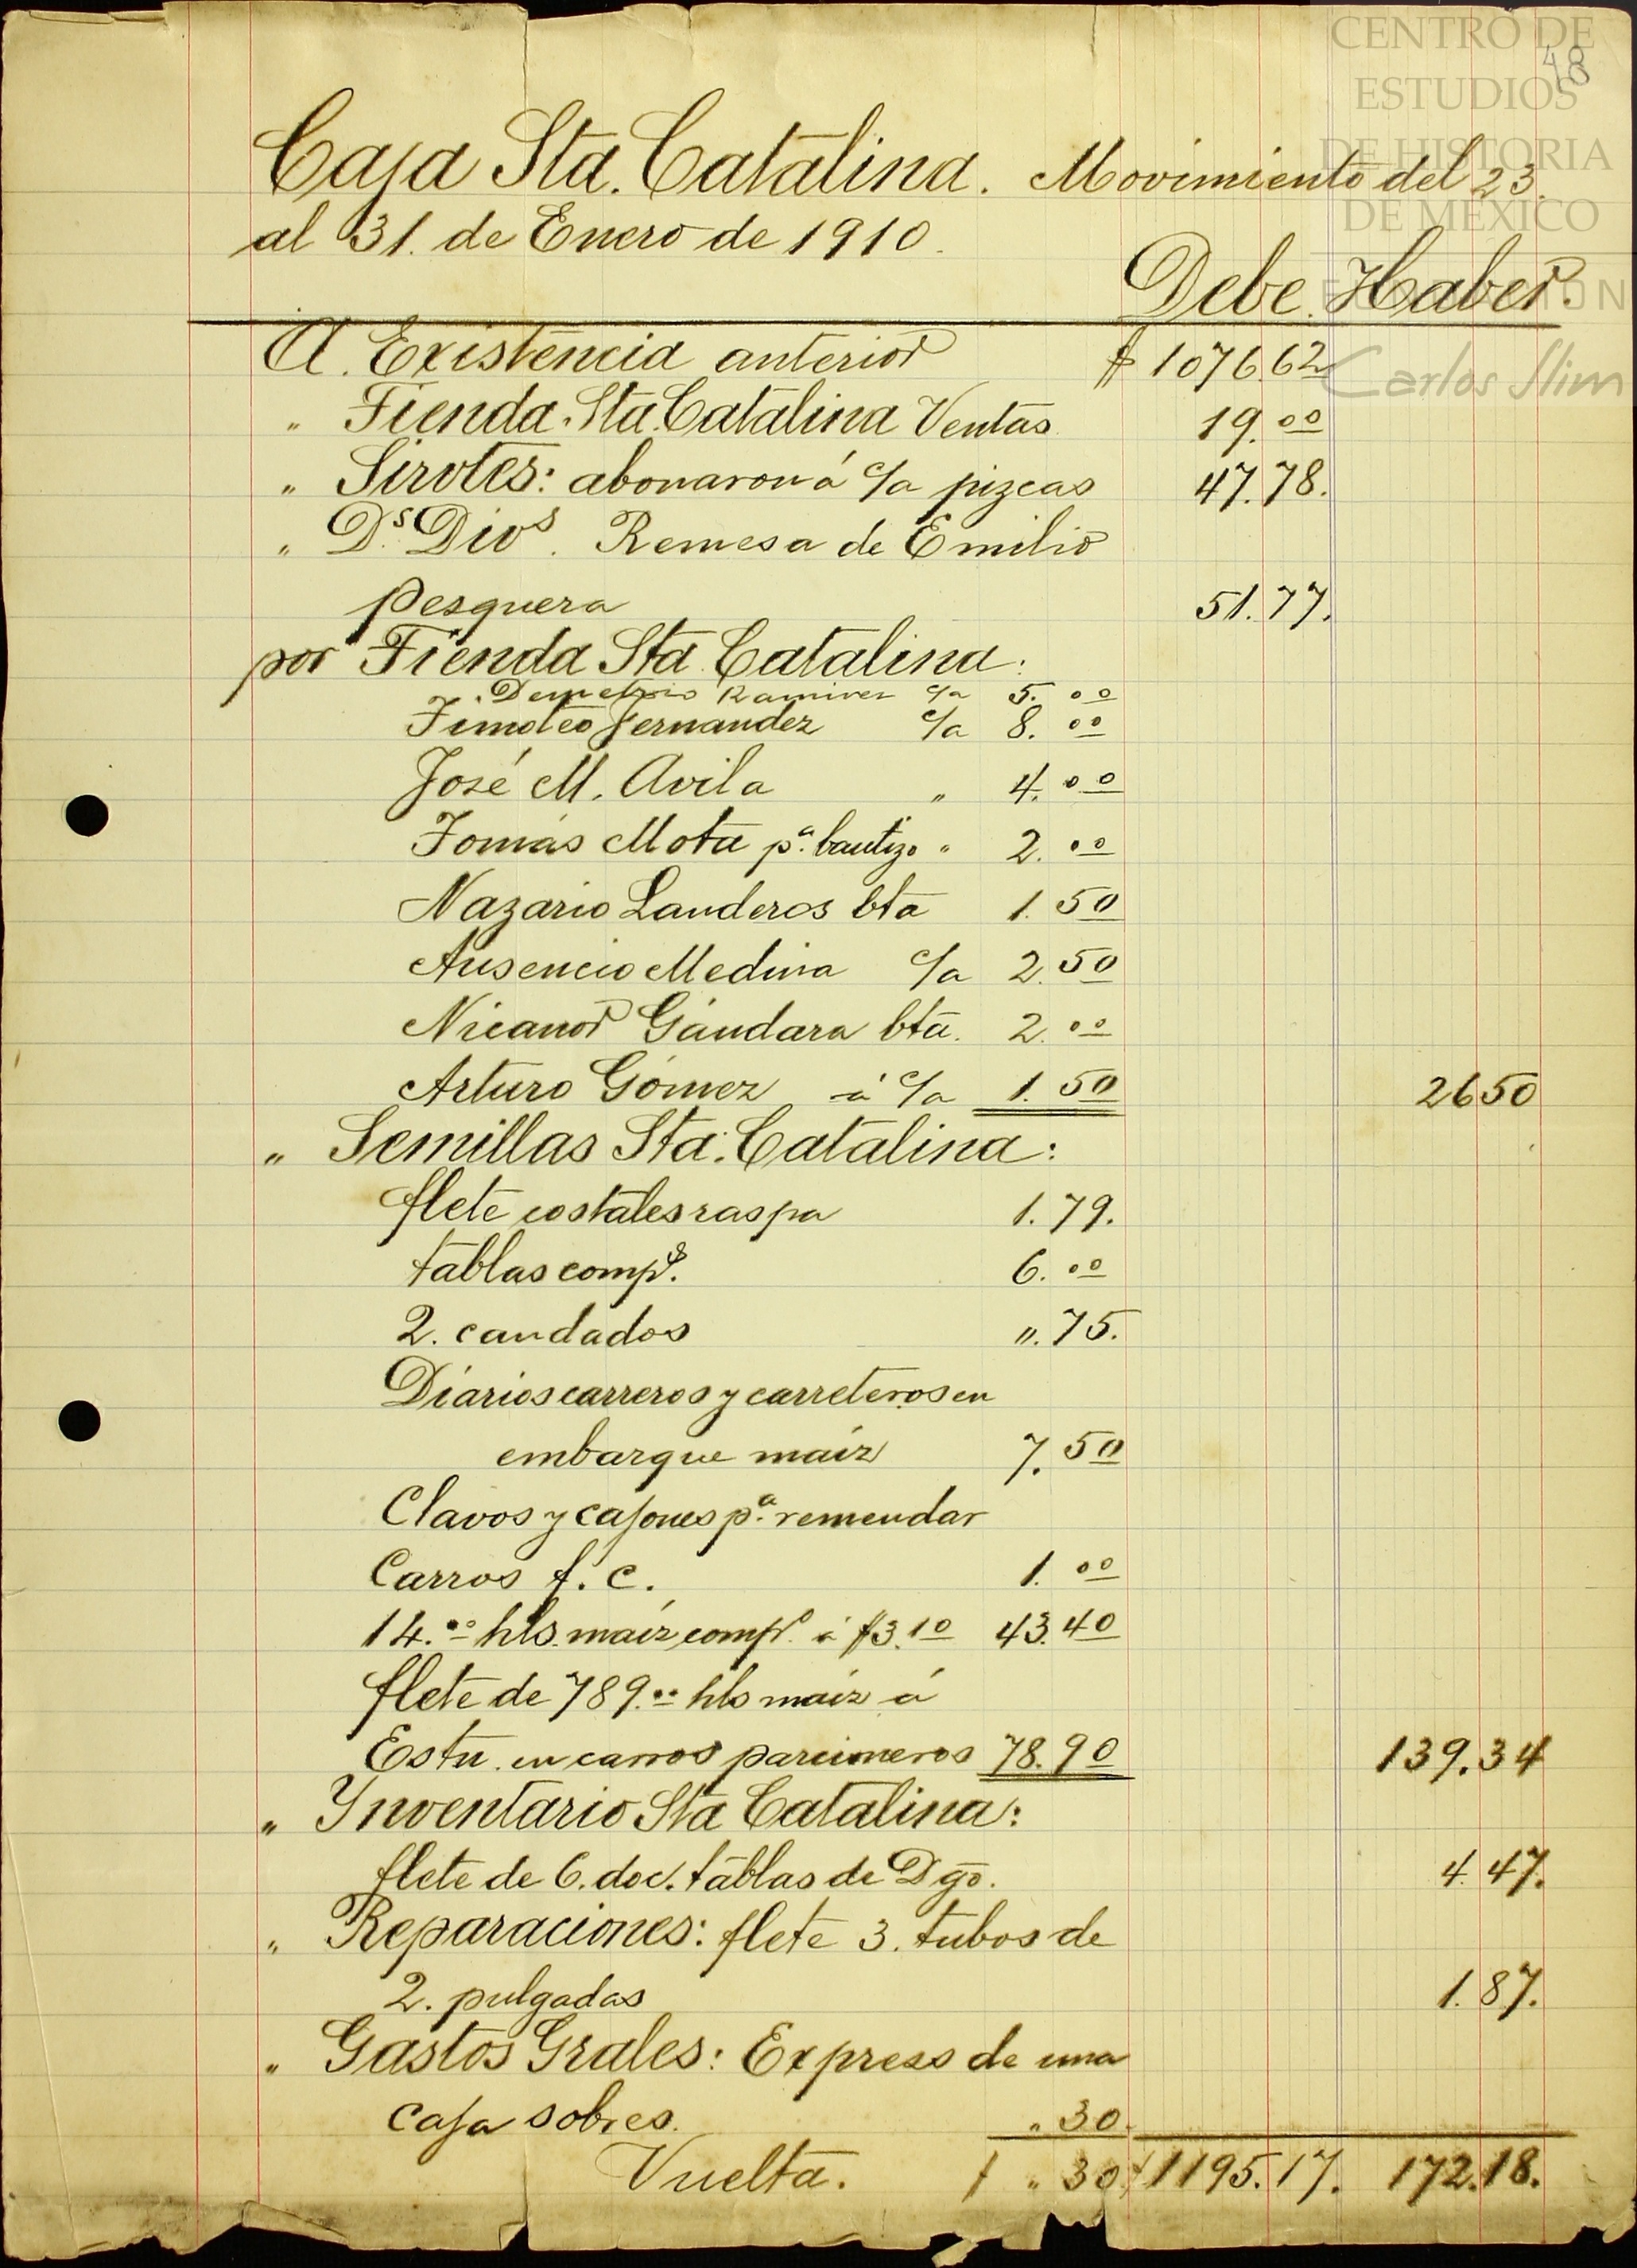 CENTRO DE
ESTUDIOS
DE HISTORIA
DE MÉXICO
FUNDACIÓN
Carlos Slim
48
Caja Sta. Catalina. Movimiento del 23.
al 31. de Enero de 1910.
Debe. Haber.
A. Existencia anterior $ 1076.62
" Tienda Sta. Catalina Ventas 19.00
" Sirvtes: abonaron á c/a pizcas 47.78.
" Ds. Divs. Remesa de Emilio
Pesquera 51.77.
por Tienda Sta Catalina:
Demetrio Ramirez c/a 5.00
Timoteo Fernandez c/a 8.00
José M. Avila " 4.00
Tomás Mota pa. bautizo " 2.00
Nazario Landeros bta 1.50
Ausencio Medina c/a 2.50
Nicanor Gándara bta. 2.00
Arturo Gómez á c/a 1.50 26 50
" Semillas Sta. Catalina:
flete costales raspa 1.79.
tablas comps. 6.00
2. candados ". 75.
Diarios carreros y carreteros en
embarque maíz 7.50
Clavos y cajones pa. remendar
Carros f. c. 1.00
14.00 hls. maíz comp. á $3.10 43.40
flete de 789.00 hls maíz á
Estn. en carros parcioneros 78.90 139.34
" Ynventario Sta Catalina:
flete de 6. doc. tablas de Dgo. 4.47.
" Reparaciones: flete 3. tubos de
2. pulgadas 1.87.
" Gastos Grales: Express de una
caja sobres. " 30.
Vuelta. $ " 30 $ 1195.17. 172.18.